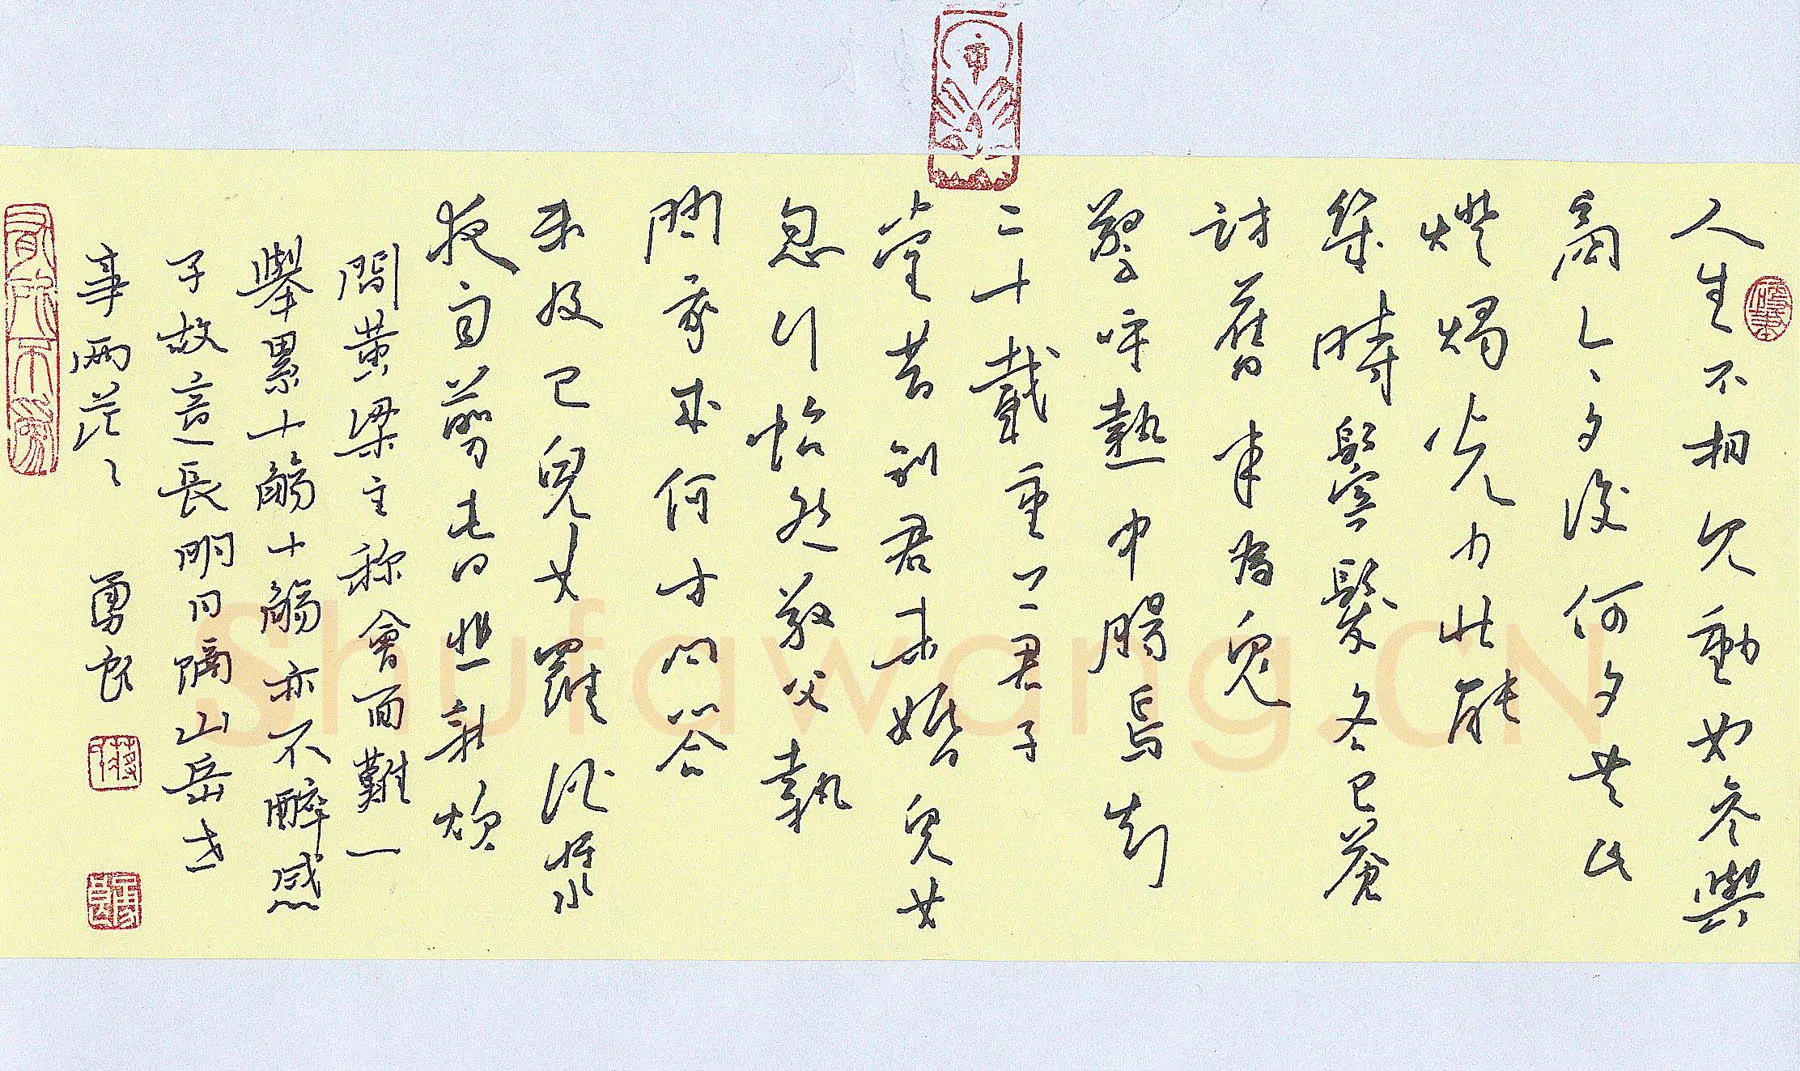 人生不相見動如參與
商今夕復何夕共此
燈燭光少壯能
幾時鬢髮各已蒼
訪舊半為鬼
驚呼熱中腸焉知
二十載重上君子
堂昔別君未婚兒女
忽行怡然敬父執
問我來何方問答
未及已兒女羅酒漿
夜雨剪春韭新炊
間黃梁主称會面難一
舉累十觴十觴亦不醉感
子故意長明日隔山岳世
事兩茫〻 勇良
有所不為
Shufawang.CN